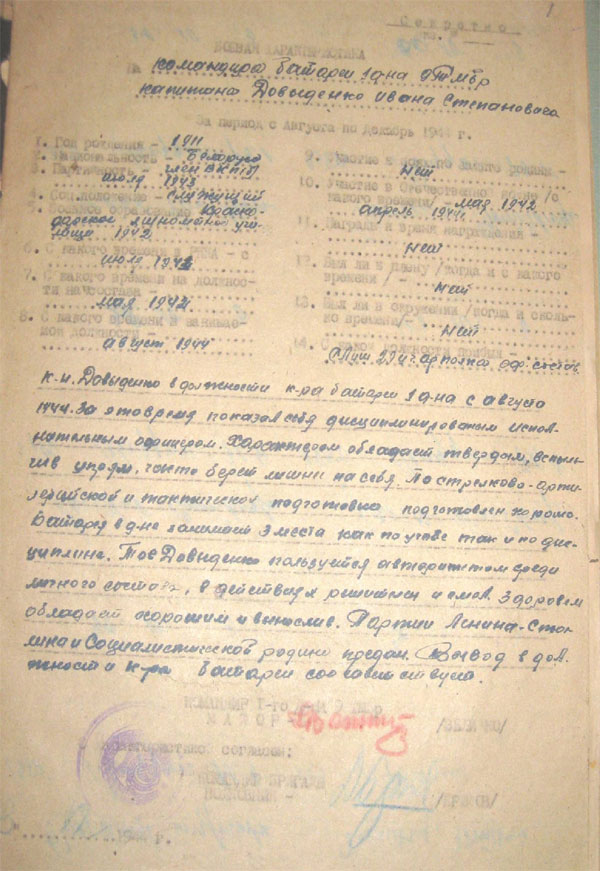 1
Секретно
БОЕВАЯ ХАРАКТЕРИСТИКА
На командира батареи 1 д-на
капитана Довыденко Ивана Степановича
За период с Августа по Декабрь 1944 г.
1. Год рождения - 1911
2. Национальность - Белорус
3. Партийность - член ВКП/б/
июля 1943
4. Соц.положение - служущий
5. Военное образование - Красно-
дарское миномётн. учи-
лище 1942
6. С какого времени в РККА - с
июля 1942
7. С какого времени на должнос-
ти начсостава -
мая 1942
8. С какого времени в занимае-
мой должности -
август 1944
9. Участие в боях по защите родины -
Нет
10. Участие в Отечественной войне /с
какого времени/ - май 1942
апрель 1944
11. Награды и время награждения -
Нет
12. Был ли в плену /когда и с какого
времени/ -
Нет
13. Был ли в окружении /когда и сколь-
ко времени/-
Нет
14. С какой должности прибыл -
полка оф. состав
к-н. Довыденко в должности к-ра батареи 1 д-на с августа
1944. За это время показал себя дисциплинированым испол-
нительным офицером. Характером обладает твердым, вспыль-
чив упрям, часто берет лишнее на себя. По стрелково-арти-
лерийской и тактической подготовке подготовлен хорошо.
Батарея в д-не занимает 3 место как по учебе так и по дис-
циплине. Тов Довыденко пользуется авторитетом среди
личного состава, в действиях решителен и смел. Здоровьем
обладает хорошим и вынослив. Партии Ленина-Ста-
лина и Социалистической родине предан. Вывод в дол-
жности к-ра батареи соответствует.
КОМАНДИР 1-го
МАЙОР /ВЕЛИЧКО/
характеристикой согласен:
КОМАНДИР БРИГАДЫ
ПОЛКОВНИК -
194 г.